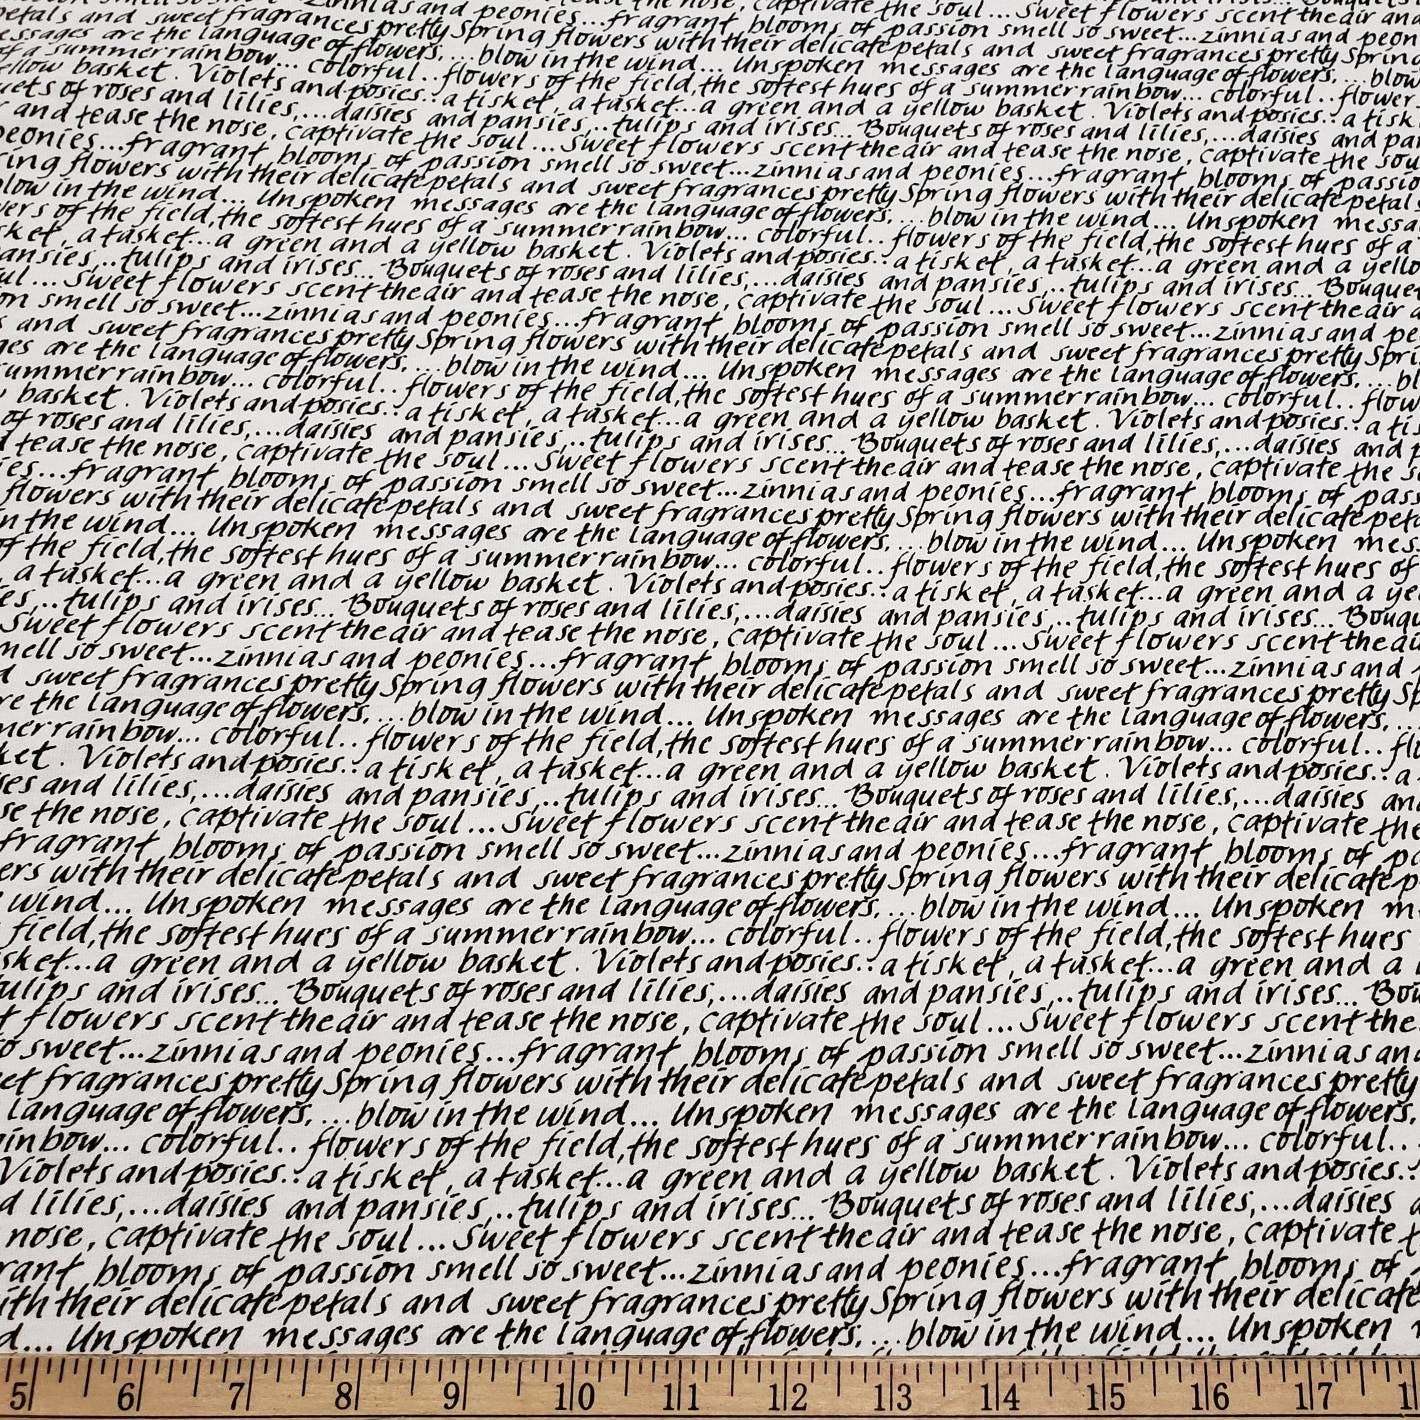 zinnias and peonies...fragrant blooms of passion smell so sweet...zinnias and
petals and sweet fragrances pretty Spring flowers with their delicate petals and sweet fragrances pretty Spring
messages are the language of flowers, ...blow in the wind... Unspoken messages are the language of flowers, ...blow
of a summer rainbow... colorful.. flowers of the field, the softest hues of a summer rainbow... colorful.. flower
yellow basket. Violets and posies.. a tisket, a tasket...a green and a yellow basket. Violets and posies.. a
of roses and lilies,...daisies and pansies,..tulips and irises... Bouquets of roses and lilies,...daisies and
and tease the nose, captivate the soul... Sweet flowers scent the air and tease the nose, captivate the soul
peonies...fragrant blooms of passion smell so sweet...zinnias and peonies...fragrant blooms of
flowers with their delicate petals and sweet fragrances pretty Spring flowers with their delicate petals
blow in the wind... Unspoken messages are the language of flowers, ...blow in the wind... Unspoken
of the field, the softest hues of a summer rainbow... colorful.. flowers of the field, the softest hues of a
a tasket...a green and a yellow basket. Violets and posies.. a tisket, a tasket...a green and a
..tulips and irises... Bouquets of roses and lilies,...daisies and pansies,..tulips and irises...
... Sweet flowers scent the air and tease the nose, captivate the soul... Sweet flowers scent the air
smell so sweet...zinnias and peonies...fragrant blooms of passion smell so sweet...zinnias and
and sweet fragrances pretty Spring flowers with their delicate petals and sweet fragrances pretty
are the language of flowers, ...blow in the wind... Unspoken messages are the language of flowers, ...
summer rainbow... colorful.. flowers of the field, the softest hues of a summer rainbow... colorful..
basket. Violets and posies.. a tisket, a tasket...a green and a yellow basket. Violets and posies.. a
of roses and lilies,...daisies and pansies,..tulips and irises... Bouquets of roses and lilies,...daisies and
tease the nose, captivate the soul... Sweet flowers scent the air and tease the nose, captivate the
...fragrant blooms of passion smell so sweet...zinnias and peonies...fragrant blooms of
flowers with their delicate petals and sweet fragrances pretty Spring flowers with their delicate
in the wind... Unspoken messages are the language of flowers, ...blow in the wind... Unspoken
of the field, the softest hues of a summer rainbow... colorful.. flowers of the field, the softest hues of
, a tasket...a green and a yellow basket. Violets and posies.. a tisket, a tasket...a green and a
..tulips and irises... Bouquets of roses and lilies,...daisies and pansies,..tulips and irises...
Sweet flowers scent the air and tease the nose, captivate the soul... Sweet flowers scent the
smell so sweet...zinnias and peonies...fragrant blooms of passion smell so sweet...zinnias and
sweet fragrances pretty Spring flowers with their delicate petals and sweet fragrances pretty
the language of flowers, ...blow in the wind... Unspoken messages are the language of flowers, ...
rainbow... colorful.. flowers of the field, the softest hues of a summer rainbow... colorful..
Violets and posies.. a tisket, a tasket...a green and a yellow basket. Violets and posies.. a
and lilies,...daisies and pansies,..tulips and irises... Bouquets of roses and lilies,...daisies and
the nose, captivate the soul... Sweet flowers scent the air and tease the nose, captivate the
fragrant blooms of passion smell so sweet...zinnias and peonies...fragrant blooms of
with their delicate petals and sweet fragrances pretty Spring flowers with their delicate
wind... Unspoken messages are the language of flowers, ...blow in the wind... Unspoken
field, the softest hues of a summer rainbow... colorful.. flowers of the field, the softest hues
...a green and a yellow basket. Violets and posies.. a tisket, a tasket...a green and a
tulips and irises... Bouquets of roses and lilies,...daisies and pansies,..tulips and irises...
flowers scent the air and tease the nose, captivate the soul... Sweet flowers scent the
so sweet...zinnias and peonies...fragrant blooms of passion smell so sweet...zinnias and
fragrances pretty Spring flowers with their delicate petals and sweet fragrances pretty
language of flowers, ...blow in the wind... Unspoken messages are the language of flowers,
rainbow... colorful.. flowers of the field, the softest hues of a summer rainbow... colorful..
Violets and posies.. a tisket, a tasket...a green and a yellow basket. Violets and posies..
lilies,...daisies and pansies,..tulips and irises... Bouquets of roses and lilies,...daisies
nose, captivate the soul... Sweet flowers scent the air and tease the nose, captivate
blooms of passion smell so sweet...zinnias and peonies...fragrant blooms of
with their delicate petals and sweet fragrances pretty Spring flowers with their delicate
... Unspoken messages are the language of flowers, ...blow in the wind... Unspoken
5 6 7 8 9 10 11 12 13 14 15 16 17